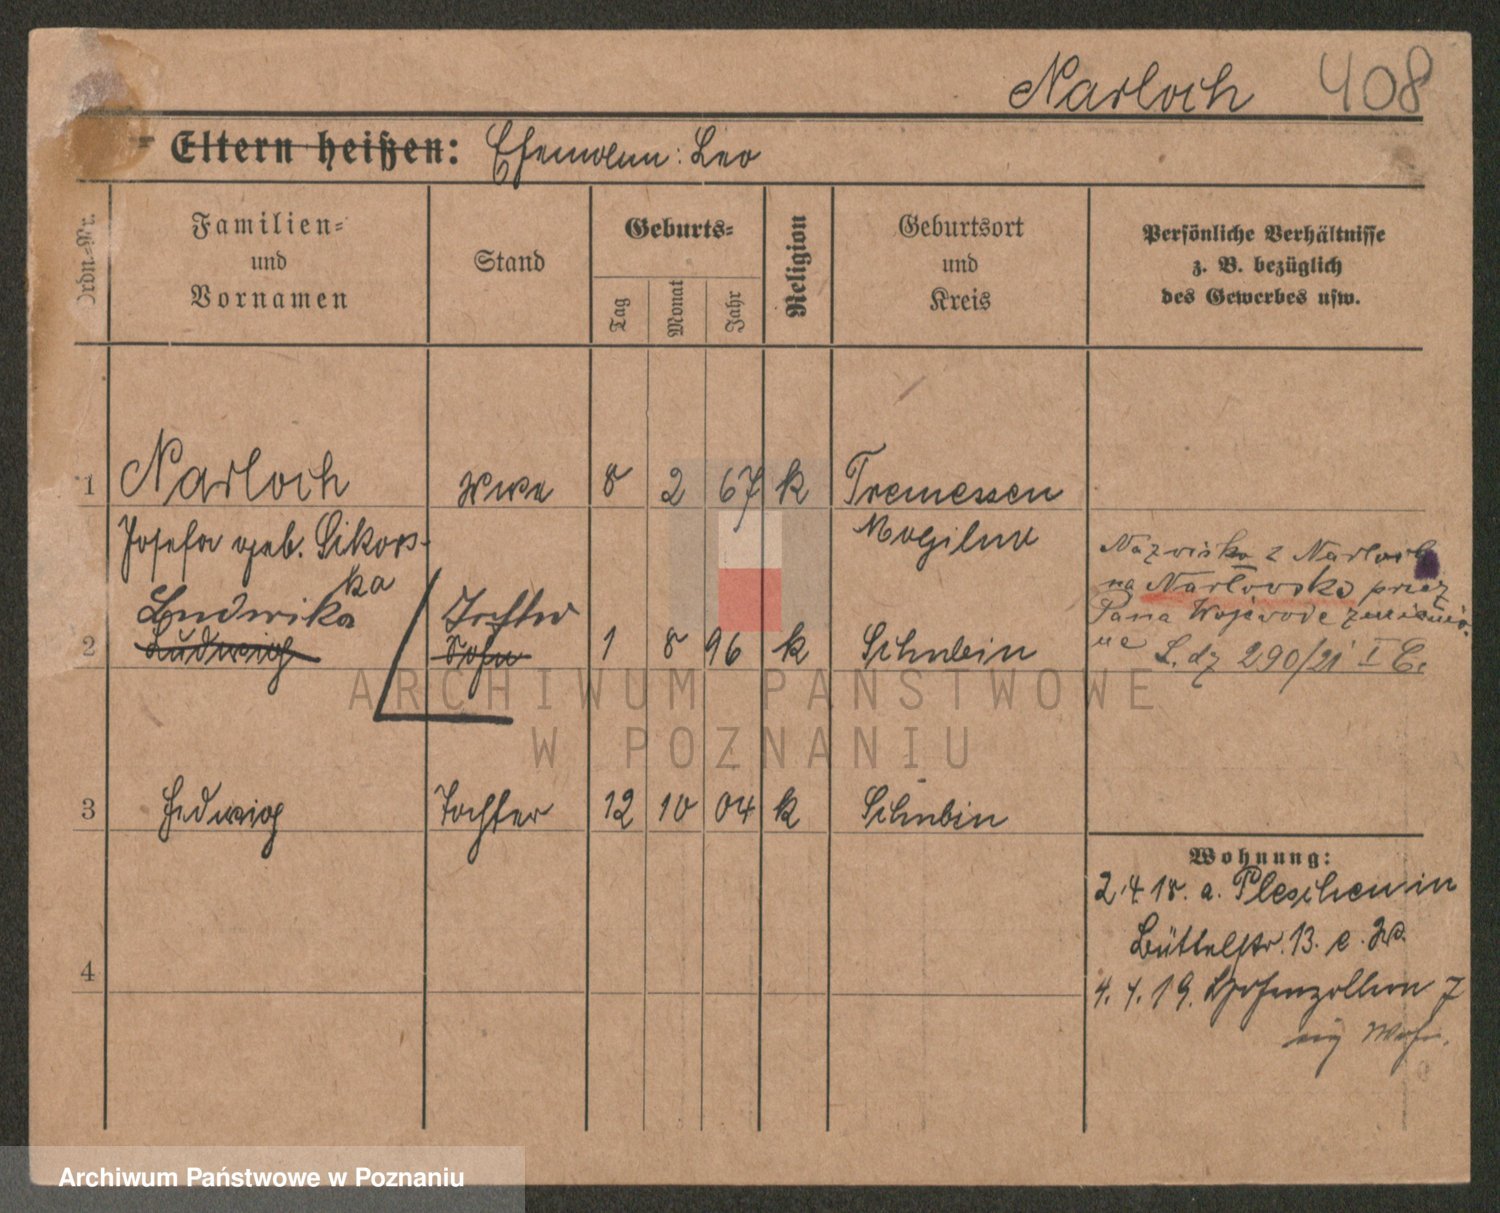 Narloch 408
Eltern heißen: Ehemann: Leo
Ordn.-Nr.
Familien-
und
Vornamen
Stand
Geburts-
Tag
Monat
Jahr
Religion
Geburtsort
und
Kreis
Persönliche Verhältnisse
z. B. bezüglich
des Gewerbes usw.
1 Narloch Wwe 8 2 67 k Tremessen
Josefa geb. Sikors- Mogilno
ka
Nazwisko z Narloch
na Narlovska przez
Pana Wojewodę zmienio-
ne L. dz 290/21 I C.
Ludwika Tochter
2 Ludwig Sohn 1 8 96 k Schubin
3 Hedwig Tochter 12 10 04 k Schubin
4
Wohnung:
2.4 18. a. Pleschen in
Büttelstr. 13. e.
4. 4. 19. Hohenzollern 7
eig Wohn.
ARCHIWUM PAŃSTWOWE
W POZNANIU
Archiwum Państwowe w Poznaniu